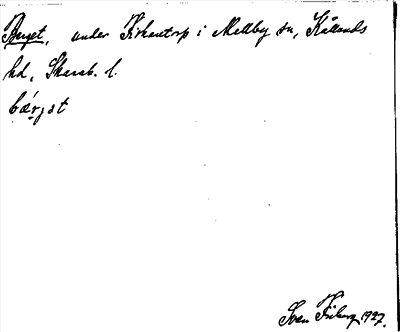 Berget, under Kirkentorp i Mellby sn, Kållands
hd, Skarab. l.
bǽrjət
Sven Friberg 1927.